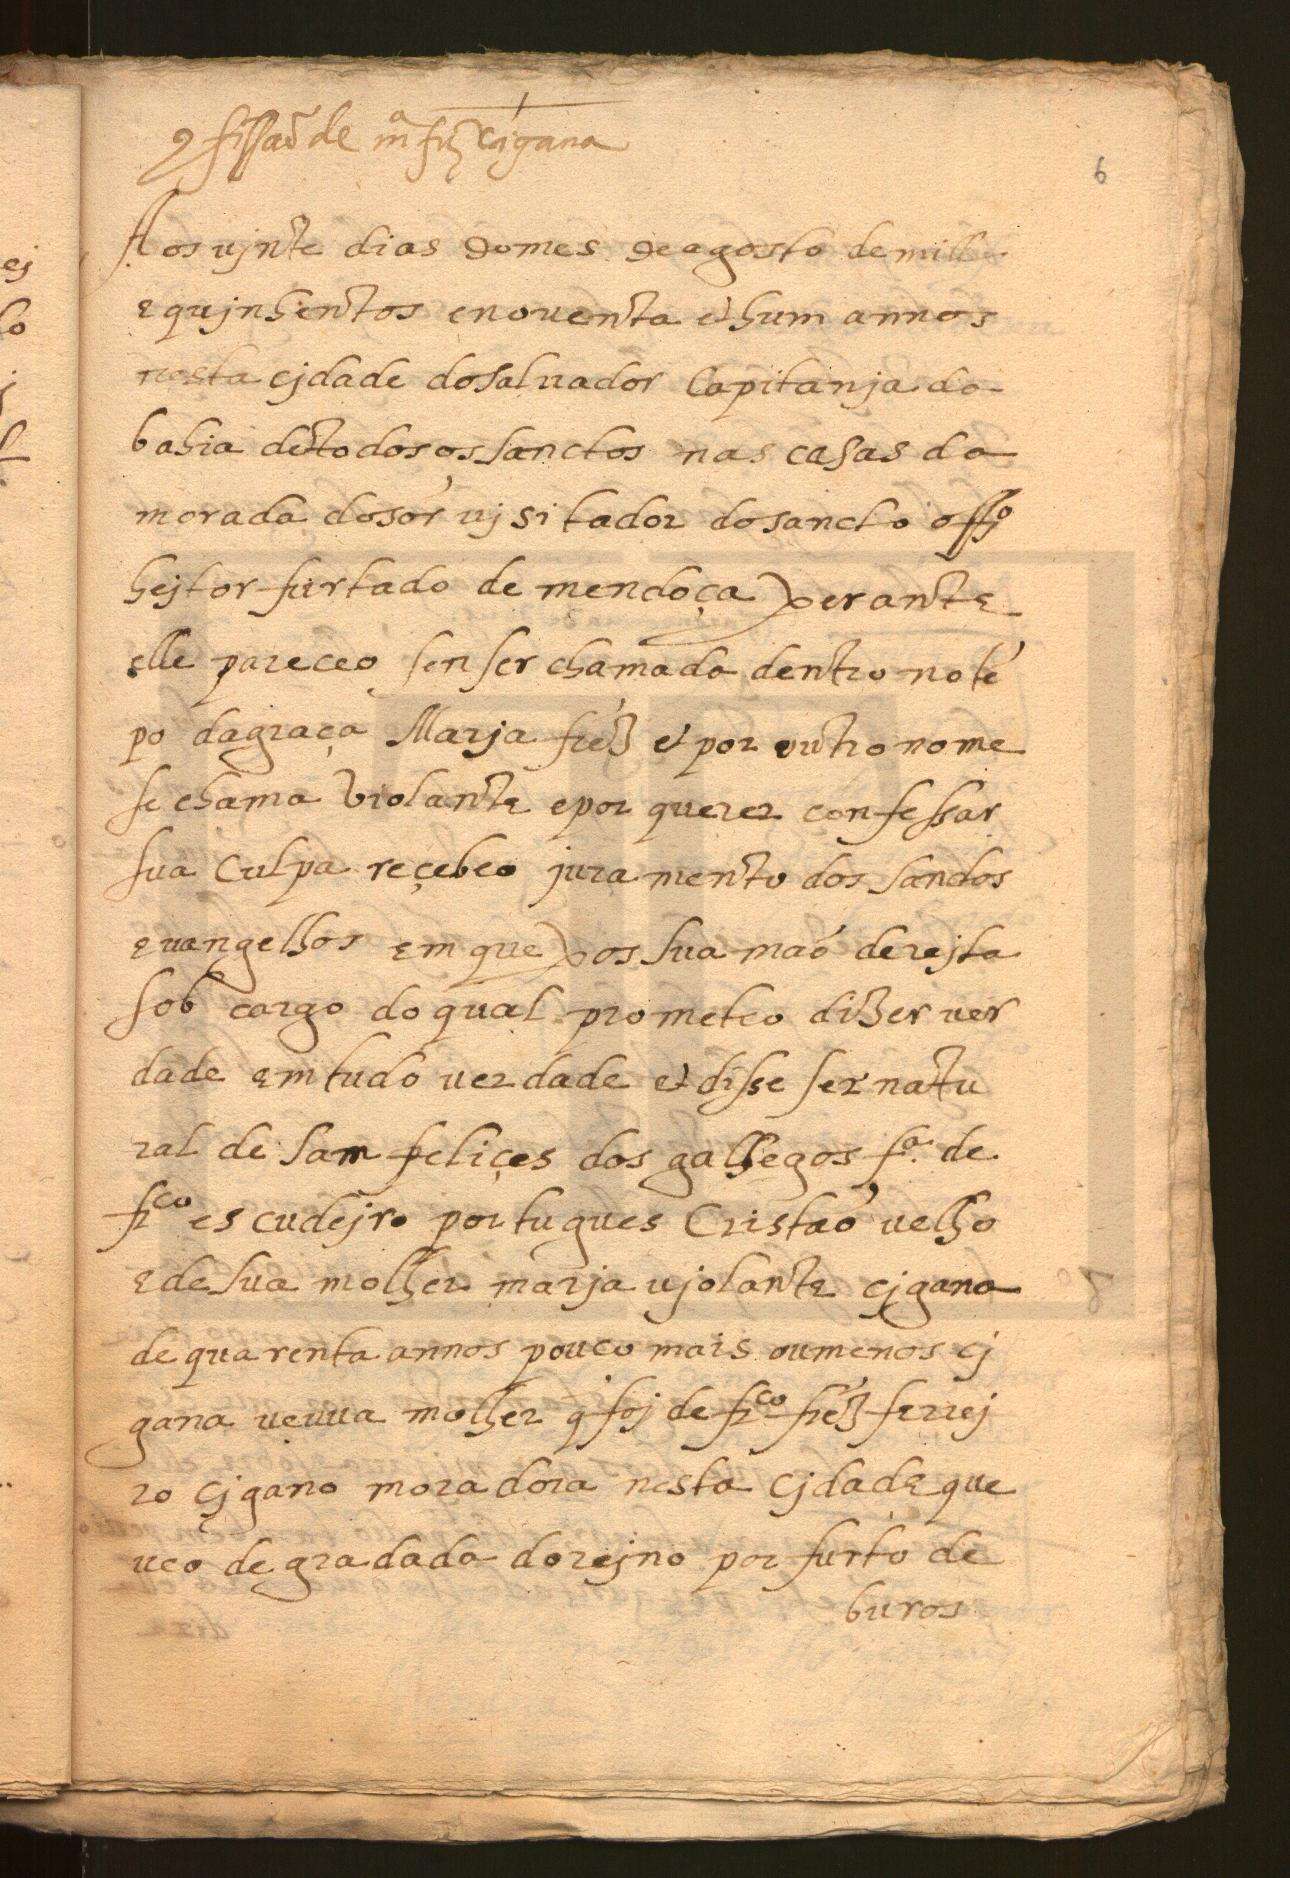 9fissaõ de mª frz cigana
6
Aos vjnte dias do mes de agosto de mill
e qujnhentos e noventa e hum annos
nesta cjdade do saluador Capitanja da
bahia de todos os sanctos nas casas da
morada do sõr vjsitador do sancto offº
hejtor furtado de mendoça perante
elle pareceo sen ser chamada dentro no tẽ
po da graça Marja frẽz e por outro nome
se chama violante e por querer confessar
sua culpa reçebeo juramento dos sanctos
evangelhos em que pos sua maõ derejta
sob cargo do qual prometeo dizer ver
dade em tudo verdade e disse ser natu
ral de sam feliçes dos gallhegos fª de
frco escudejro portugues Cristaõ velho
e de sua molher marja vjolante cjgana
de quarenta annos pouco mais ou menos cj
gana veuva molher q foj de frco frẽz ferrej
ro cjgano moradora nesta cjdade que
veo degradada do rejno por furto de
buros